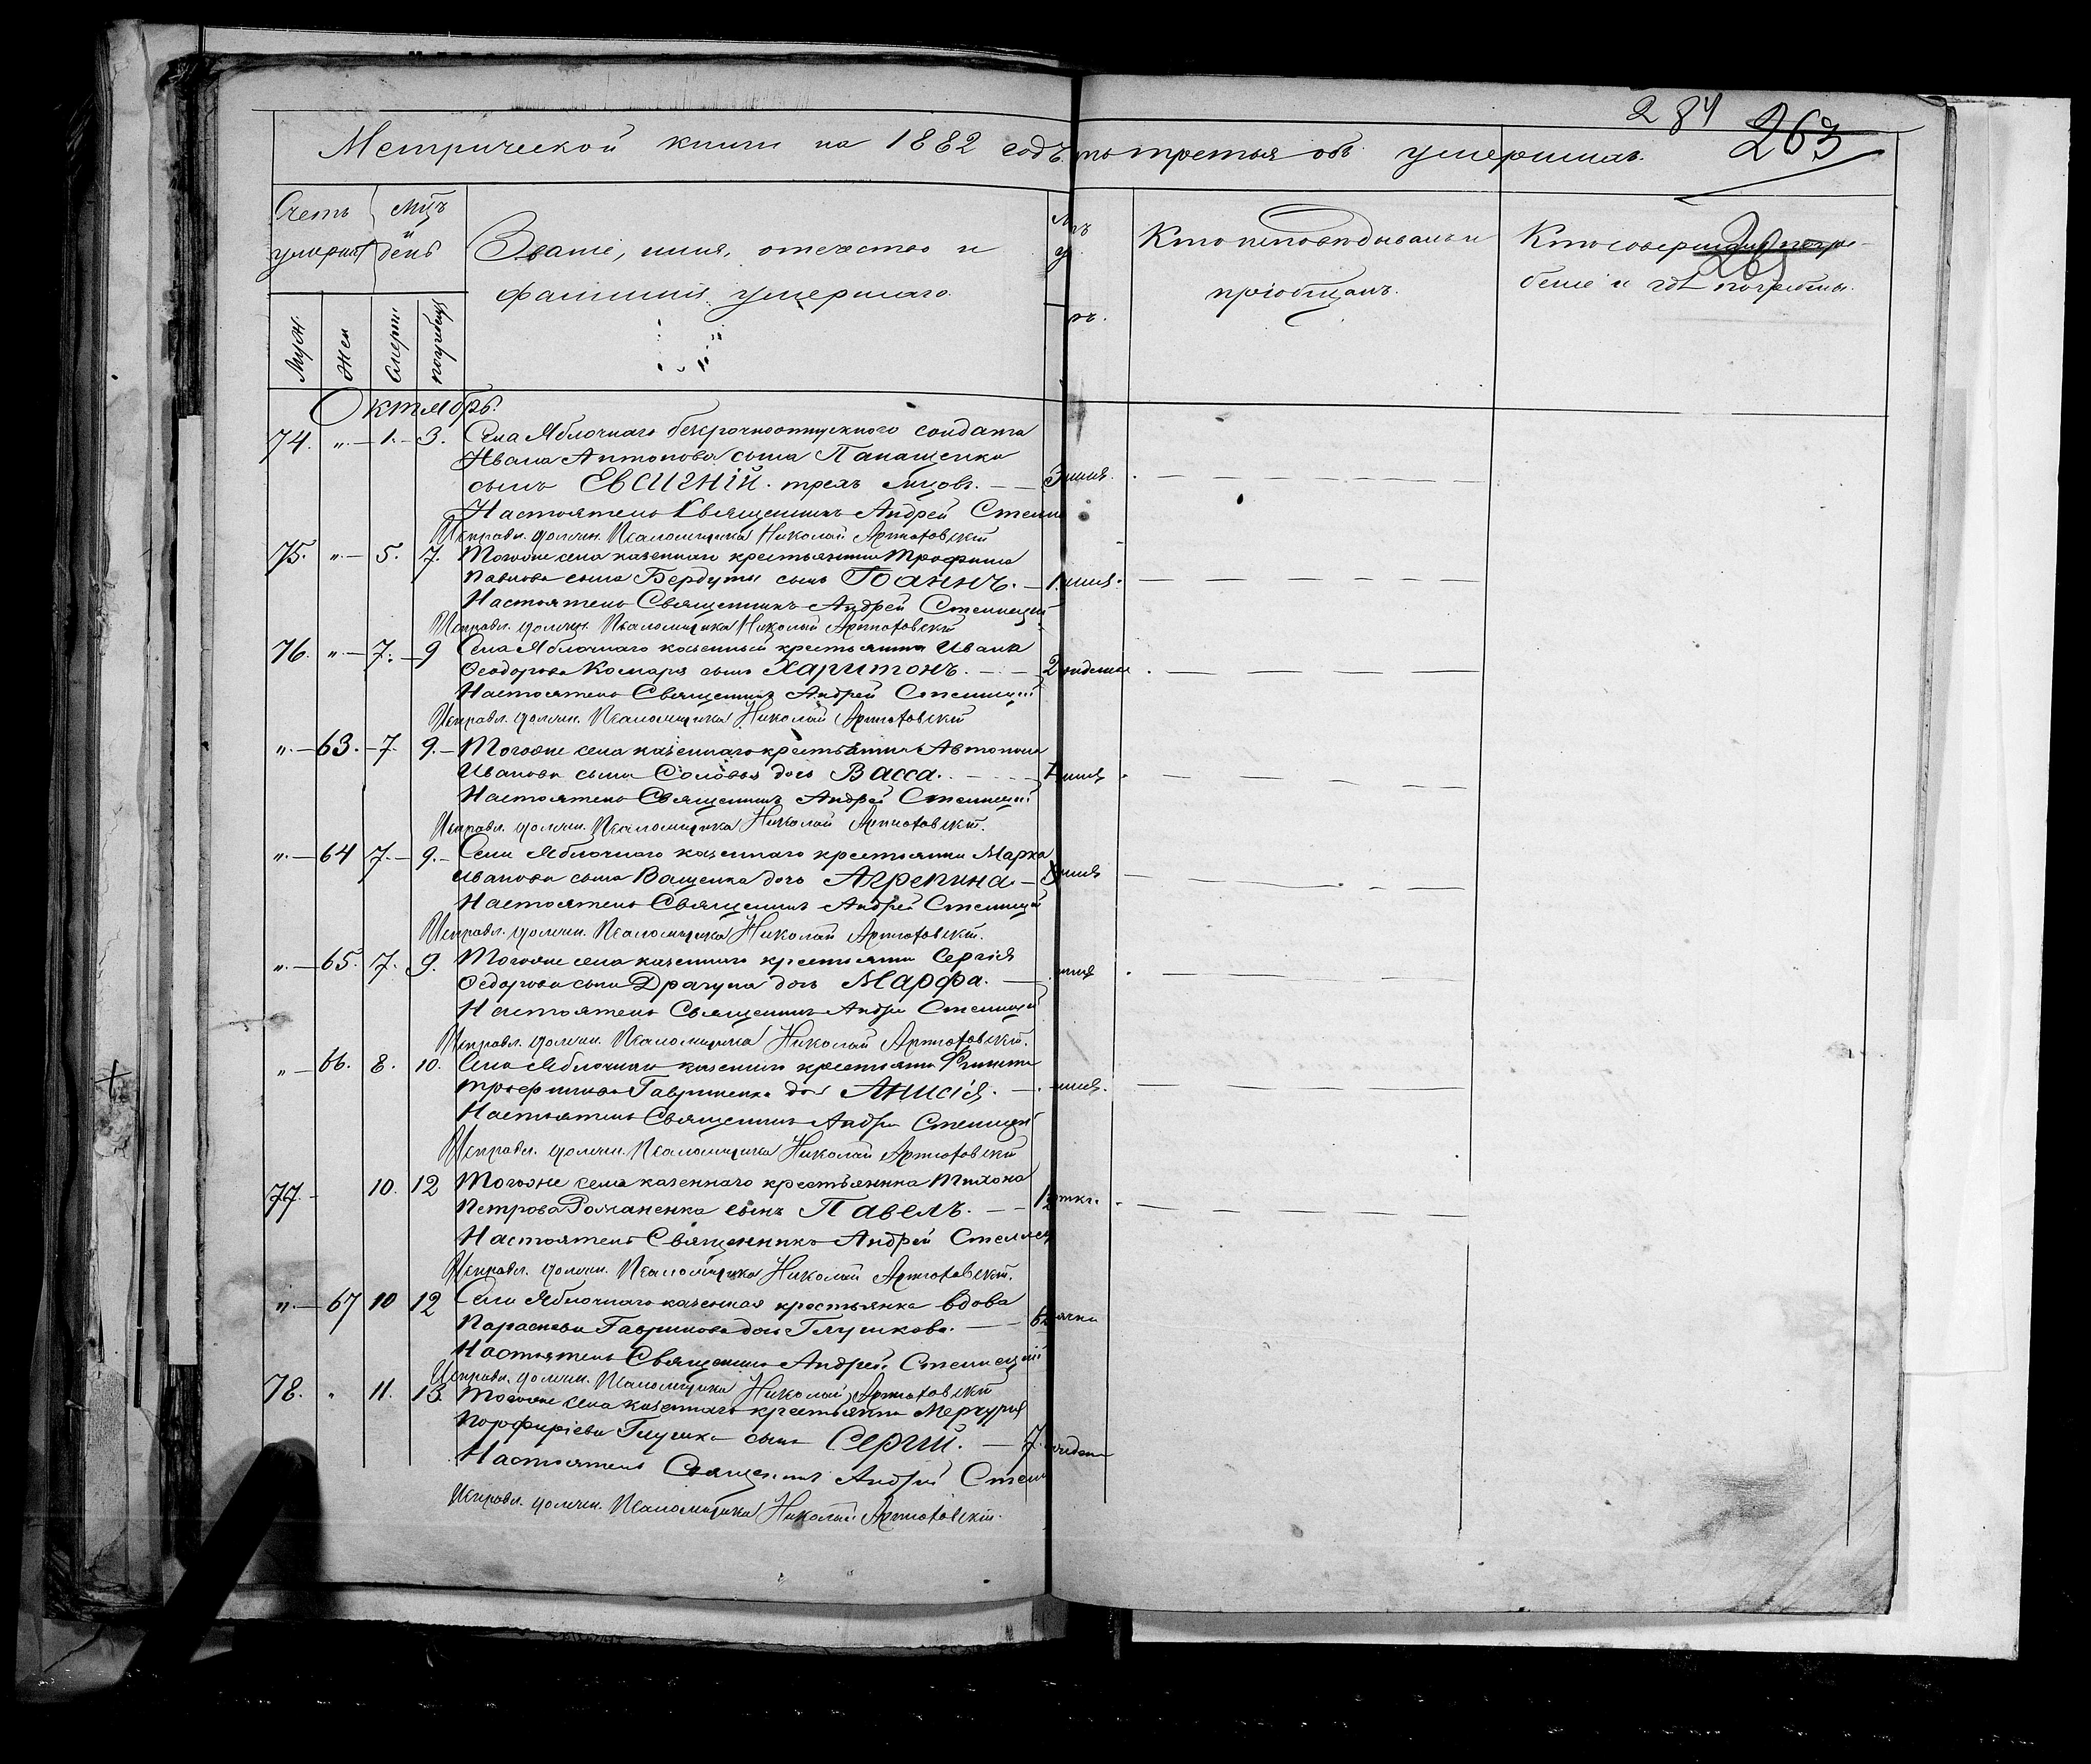 284 263
Метрической книги на 1882 годъ третья объ умершихъ.
Счетъ умерш
Мцъ и день
Званіе, имя, отечество и фамилія умершаго.
Кто исповѣдывалъ и пріобщалъ.
Кто совершалъ погребеніе и гдѣ погребены.
Муж.
Жен
Смерти
погребен
Октябрь.
74. „ 1. 3. Села Яблочнаго безсрочноотпускного солдата
Ивана Антонова сына Панащенко
сынъ Евсигній. трехъ мцовъ.
Настоятель Священникъ Андрей
Исправл. должн. Псаломщика Николай
75. „ 5. 7. Тогоже села казеннаго крестьянина Трофима
Павлова сына Бердуты сынъ Іоаннъ.
Настоятель Священникъ Андрей
Исправл. должн. Псаломщика Николай
76. „ 7. 9 Села Яблочнаго казенный крестьянина Ивана
Ѳеодорова Комаря сынъ Харитонъ. 2 недели
Настоятель Священникъ Андрей
Исправл. должн. Псаломщика Николай
„ 63. 7. 9. Тогоже села казеннаго крестьянина Автонома
Иванова сына Соловья дочь Васса.
Настоятель Священникъ Андрей
Исправл. должн. Псаломщика Николай
„ 64 7. 9. Села Яблочнаго казеннаго крестьянина Марка
Иванова сына Ващенка дочь Агрепина
Настоятель Священникъ Андрей
Исправл. должн. Псаломщика Николай
„ 65. 7. 9. Тогоже села казеннаго крестьянина Сергія
Ѳедорова сына Драгуна дочь Марфа.
Настоятель Священникъ Андрей
Исправл. должн. Псаломщика Николай
„ 66. 8. 10. Села Яблочнаго казеннаго крестьянина
Трофимова Гавриленка дочь Анисія.
Настоятель Священникъ Андрей
Исправл. должн. Псаломщика Николай
77. 10. 12 Тогоже села казеннаго крестьянина Тихона
Петрова Романенка сынъ Павелъ.
Настоятель Священникъ Андрей
Исправл. должн. Псаломщика Николай
„ 67 10 12 Села Яблочнаго казенная крестьянка вдова
Параскева Гаврилова дочь Глушкова.
Настоятель Священникъ Андрей
Исправл. должн. Псаломщика Николай
78. „ 11. 13. Тогоже села казеннаго крестьянина Меркурія
Порфиріева Глушка сынъ Сергій. 7.
Настоятель Священникъ Андрей
Исправл. должн. Псаломщика Николай